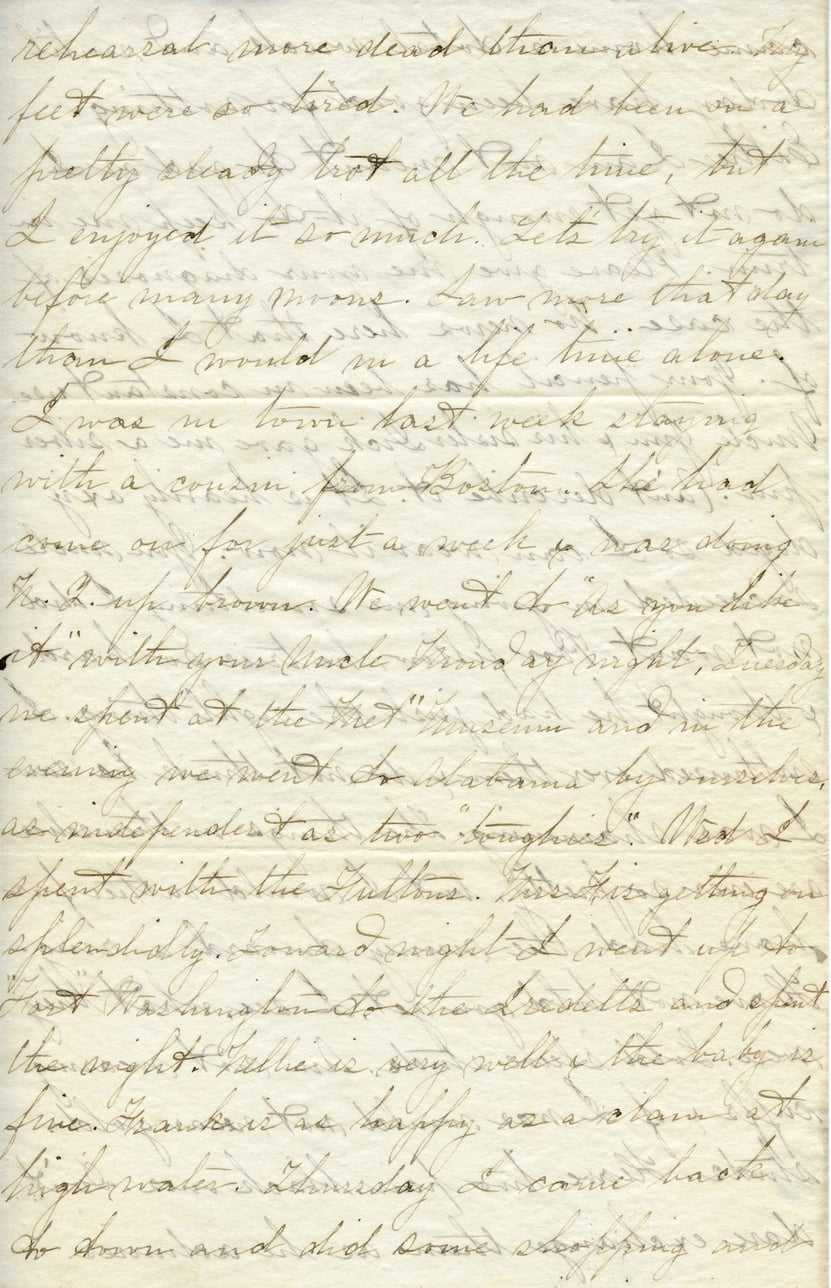 rehearsal more dead than alive. My
feet were so tired. We had been on a
pretty steady trot all the time, but
I enjoyed it so much. Let's try it again
before many moons. Saw more that day
than I would in a life time alone.
I was in town last week staying
with a cousin from Boston. She had
come on for just a week & was doing
N.Y. up brown. We went to "As you like
it" with your Uncle Monday night, Tuesday
we spent at the "Met" Museum and in the
evening we went to Alabama by ourselves,
as independent as two "toughies". Wed I
spent with the Fultons. Mrs F is getting on
splendidly. Toward night I went up to
"Fort" Washington to the Iredells and spent
the night. Nellie is very well & the baby is
fine. Frank is as happy as a clam at
high water. Thursday I came back
to town and did some shopping and